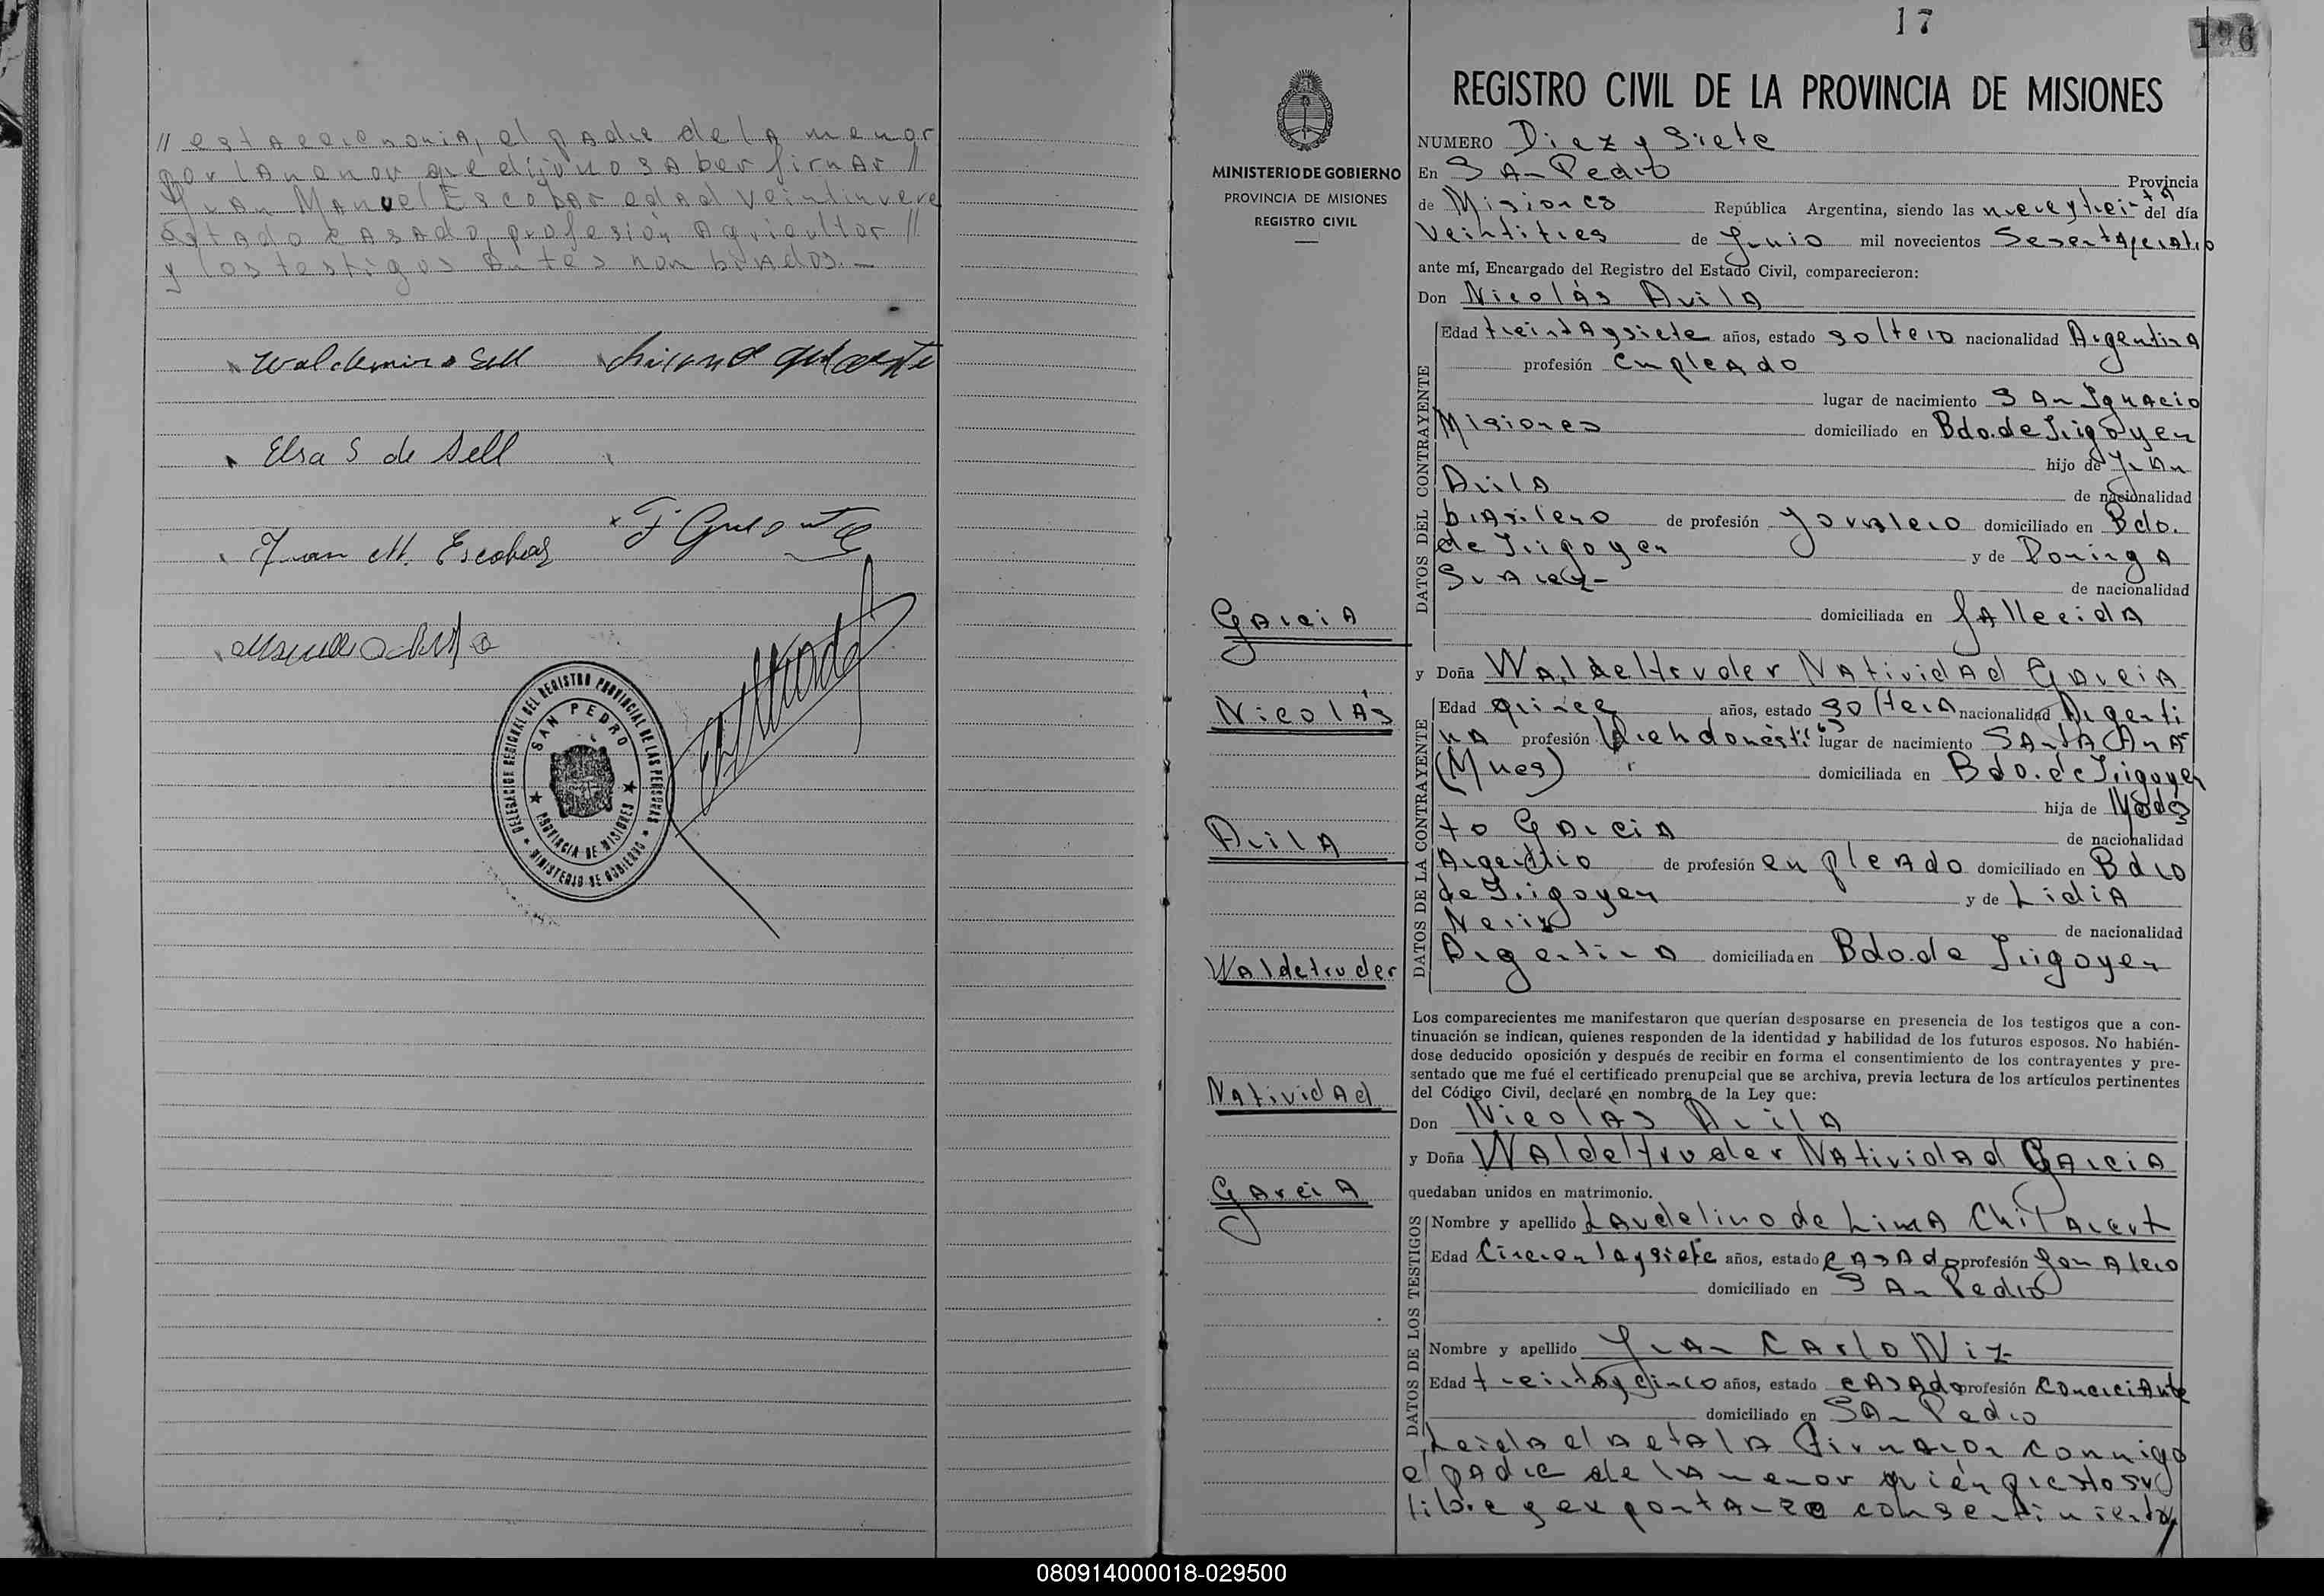 // esta ceremonia, el padre de la menor
por la menor que dijo no saber firmar //
Juan Manuel Escobar edad veintinueve
estado casado, profesión agricultor //
y los testigos antes nombrados.—
Waldemiro Sell
Elsa S de Sell
Juan M. Escobar
DELEGACION REGIONAL DEL REGISTRO PROVINCIAL DE LAS PERSONAS
MINISTERIO DE GOBIERNO
SAN PEDRO
PROVINCIA DE MISIONES
17
196
REGISTRO CIVIL DE LA PROVINCIA DE MISIONES
MINISTERIO DE GOBIERNO
PROVINCIA DE MISIONES
REGISTRO CIVIL
Garcia
Nicolás
Avila
Waldetruder
Natividad
Garcia
NUMERO Diez y Siete
En San Pedro Provincia
de Misiones República Argentina, siendo las nueve y treinta del día
veintitres de Junio mil novecientos Sesenta y cuatro
ante mí, Encargado del Registro del Estado Civil, comparecieron:
Don Nicolás Avila
DATOS DEL CONTRAYENTE
Edad treinta y siete años, estado soltero nacionalidad Argentina
profesión empleado
lugar de nacimiento San Ignacio
Misiones domiciliado en Bdo. de Irigoyen
hijo de Juan
Avila de nacionalidad
brasilero de profesión Jornalero domiciliado en Bdo.
de Irigoyen y de Dominga
Suarez— de nacionalidad
domiciliada en fallecida
y Doña Waldeltruder Natividad Garcia
DATOS DE LA CONTRAYENTE
Edad quince años, estado soltera nacionalidad Argenti
na profesión lugar de nacimiento Santa Ana
(Mnes) domiciliada en Bdo. de Irigoyen
hija de Modes
to Garcia de nacionalidad
Argentino de profesión empleado domiciliado en Bdo
de Irigoyen y de Lidia
de nacionalidad
Argentina domiciliada en Bdo. de Irigoyen
Los comparecientes me manifestaron que querían desposarse en presencia de los testigos que a con-
tinuación se indican, quienes responden de la identidad y habilidad de los futuros esposos. No habién-
dose deducido oposición y después de recibir en forma el consentimiento de los contrayentes y pre-
sentado que me fué el certificado prenupcial que se archiva, previa lectura de los artículos pertinentes
del Código Civil, declaré en nombre de la Ley que:
Don Nicolás Avila
y Doña Waldeltruder Natividad Garcia
quedaban unidos en matrimonio.
DATOS DE LOS TESTIGOS
Nombre y apellido Laudelino de Lima
Edad Cincuenta y siete años, estado casado profesión Jornalero
domiciliado en San Pedro
Nombre y apellido Juan Carlo Niz
Edad treinta y cinco años, estado casado profesión comerciante
domiciliado en San Pedro
Leida el acta la firmaron conmigo
el padre de la menor quién presto su
libre y expontaneo consentimiento
080914000018-029500